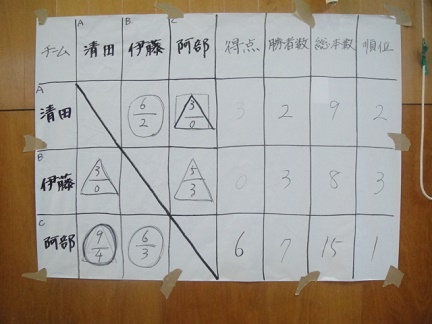 A B C
チーム 清田 伊藤 阿部 得点 勝者数 総本数 順位
A
清田 6/2 3/0 3 2 9 2
B
伊藤 3/0 5/3 0 3 8 3
C
阿部 9/4 6/3 6 7 15 1